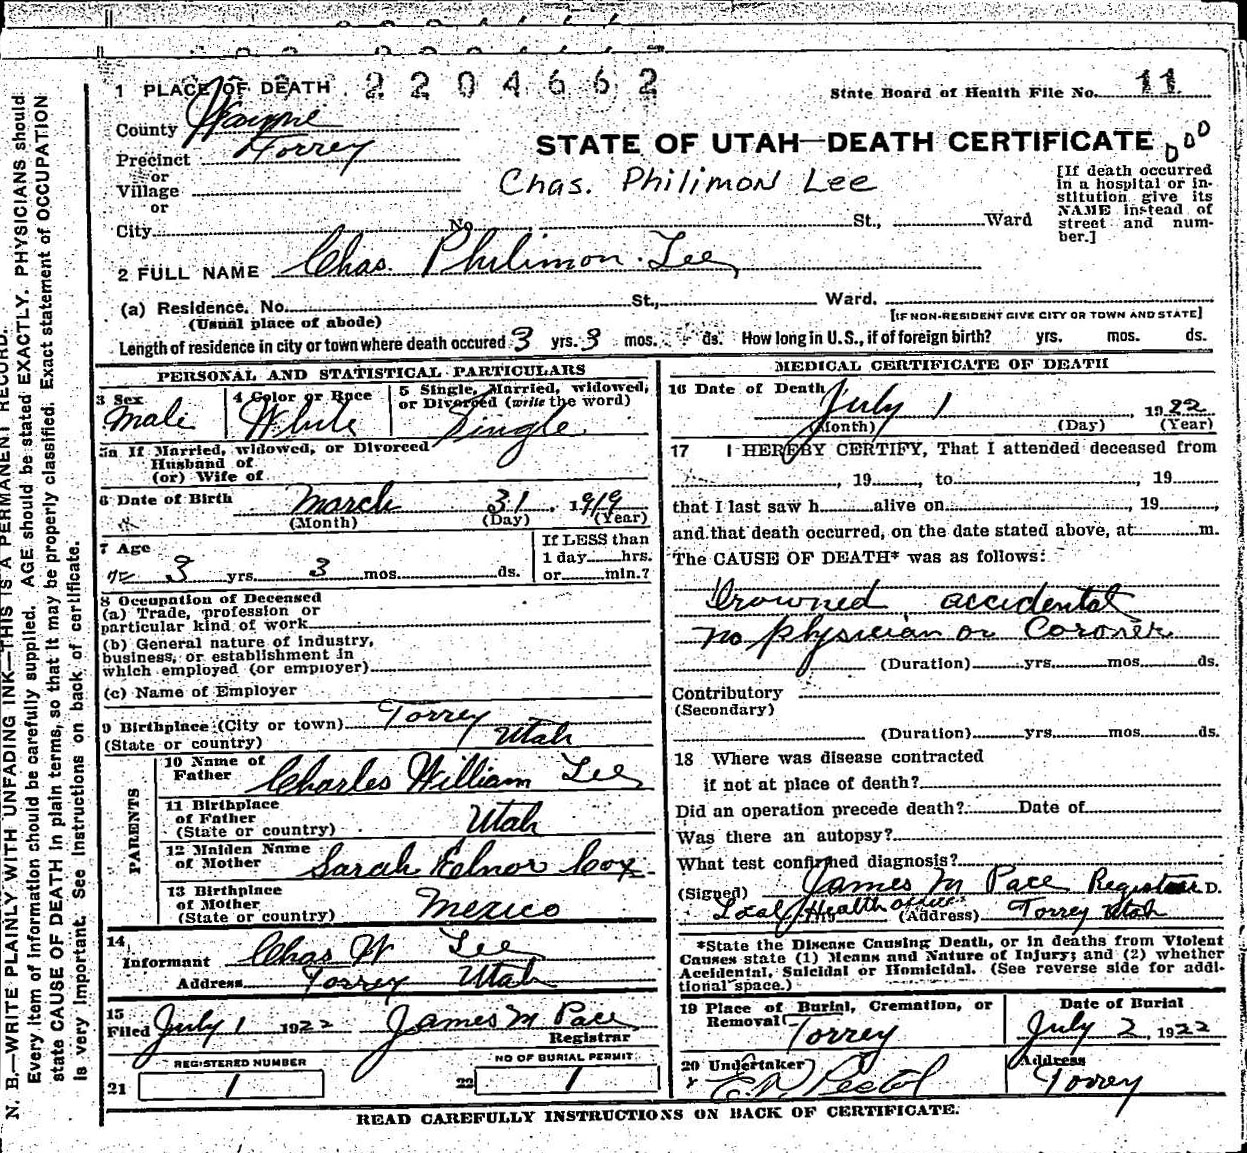 1 PLACE OF DEATH 2204662
State Board of Health File No. 11
County Wayne
STATE OF UTAH—DEATH CERTIFICATE
Precinct Torrey
or
Village
or
City No. St., Ward
Chas. Philimon Lee
[If death occurred
in a hospital or in-
stitution give its
NAME instead of
street and num-
ber.]
2 FULL NAME Chas. Philimon Lee
(a) Residence. No. St., Ward.
(Usual place of abode)
[IF NON-RESIDENT GIVE CITY OR TOWN AND STATE]
Length of residence in city or town where death occured 3 yrs. 3 mos. ds. How long in U.S., if of foreign birth? yrs. mos. ds.
PERSONAL AND STATISTICAL PARTICULARS
3 Sex Male
4 Color or Race White
5 Single, Married, widowed,
or Divorced (write the word) Single
5a If Married, widowed, or Divorced
Husband of
(or) Wife of
6 Date of Birth March 31, 1919
(Month) (Day) (Year)
7 Age
3 yrs. 3 mos. ds.
If LESS than
1 day hrs.
or min.?
8 Occupation of Deceased
(a) Trade, profession or
particular kind of work
(b) General nature of industry,
business, or establishment in
which employed (or employer)
(c) Name of Employer
9 Birthplace (City or town) Torrey
(State or country) Utah
PARENTS
10 Name of
Father Charles William Lee
11 Birthplace
of Father
(State or country) Utah
12 Maiden Name
of Mother Sarah Elnor Cox
13 Birthplace
of Mother
(State or country) Mexico
14
Informant Chas W Lee
Address Torrey Utah
15
Filed July 1 1922 James M Pace
Registrar
REGISTERED NUMBER
21 1
NO OF BURIAL PERMIT
22 1
MEDICAL CERTIFICATE OF DEATH
16 Date of Death July 1, 1922
(Month) (Day) (Year)
17 I HEREBY CERTIFY, That I attended deceased from
, 19 , to , 19
that I last saw h alive on , 19 ,
and that death occurred, on the date stated above, at m.
The CAUSE OF DEATH* was as follows:
Drowned accidental
no physician or Coroner
(Duration) yrs. mos. ds.
Contributory
(Secondary)
(Duration) yrs. mos. ds.
18 Where was disease contracted
if not at place of death?
Did an operation precede death? Date of
Was there an autopsy?
What test confirmed diagnosis?
(Signed) James M Pace Registrar D.
Local Health Officer (Address) Torrey Utah
*State the Disease Causing Death, or in deaths from Violent
Causes state (1) Means and Nature of Injury; and (2) whether
Accidental, Suicidal or Homicidal. (See reverse side for addi-
tional space.)
19 Place of Burial, Cremation, or
Removal Torrey
Date of Burial
July 2, 1922
20 Undertaker
E. P. Pectol
Address
Torrey
READ CAREFULLY INSTRUCTIONS ON BACK OF CERTIFICATE.
N. B.—WRITE PLAINLY WITH UNFADING INK—THIS IS A PERMANENT RECORD.
Every item of information should be carefully supplied. AGE should be stated EXACTLY. PHYSICIANS should
state CAUSE OF DEATH in plain terms, so that it may be properly classified. Exact statement of OCCUPATION
is very important. See instructions on back of certificate.